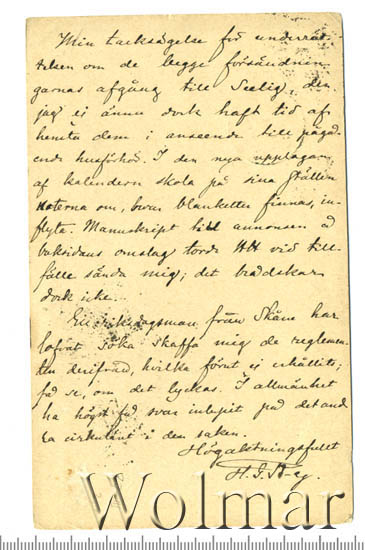 Min tacksägelse för underrät-
telsen om de begge försändnin-
garnas afgång till Seelig, den
jag ei ännu dock haft tid af-
hemta dem i anseende till pågå-
ende husförhör. I den nya upplagan
af kalendern skola på sina ställen
noterna om, hvar blanketter finnas, in-
flyta. Manuskript till annonsen å
baksidans omslag torde HH vid till-
fälle sända mig; det brådskar
dock icke.
En riksdagsman från Skåne har
lofvat söka skaffa mig de reglemen-
ten derifrån, hvilka förut ej erhållits;
få se, om det lyckas. I allmänhet
ha högst få svar inlupit på det and-
ra cirkuläret i den saken.
Högaktningsfullt
Wolmar